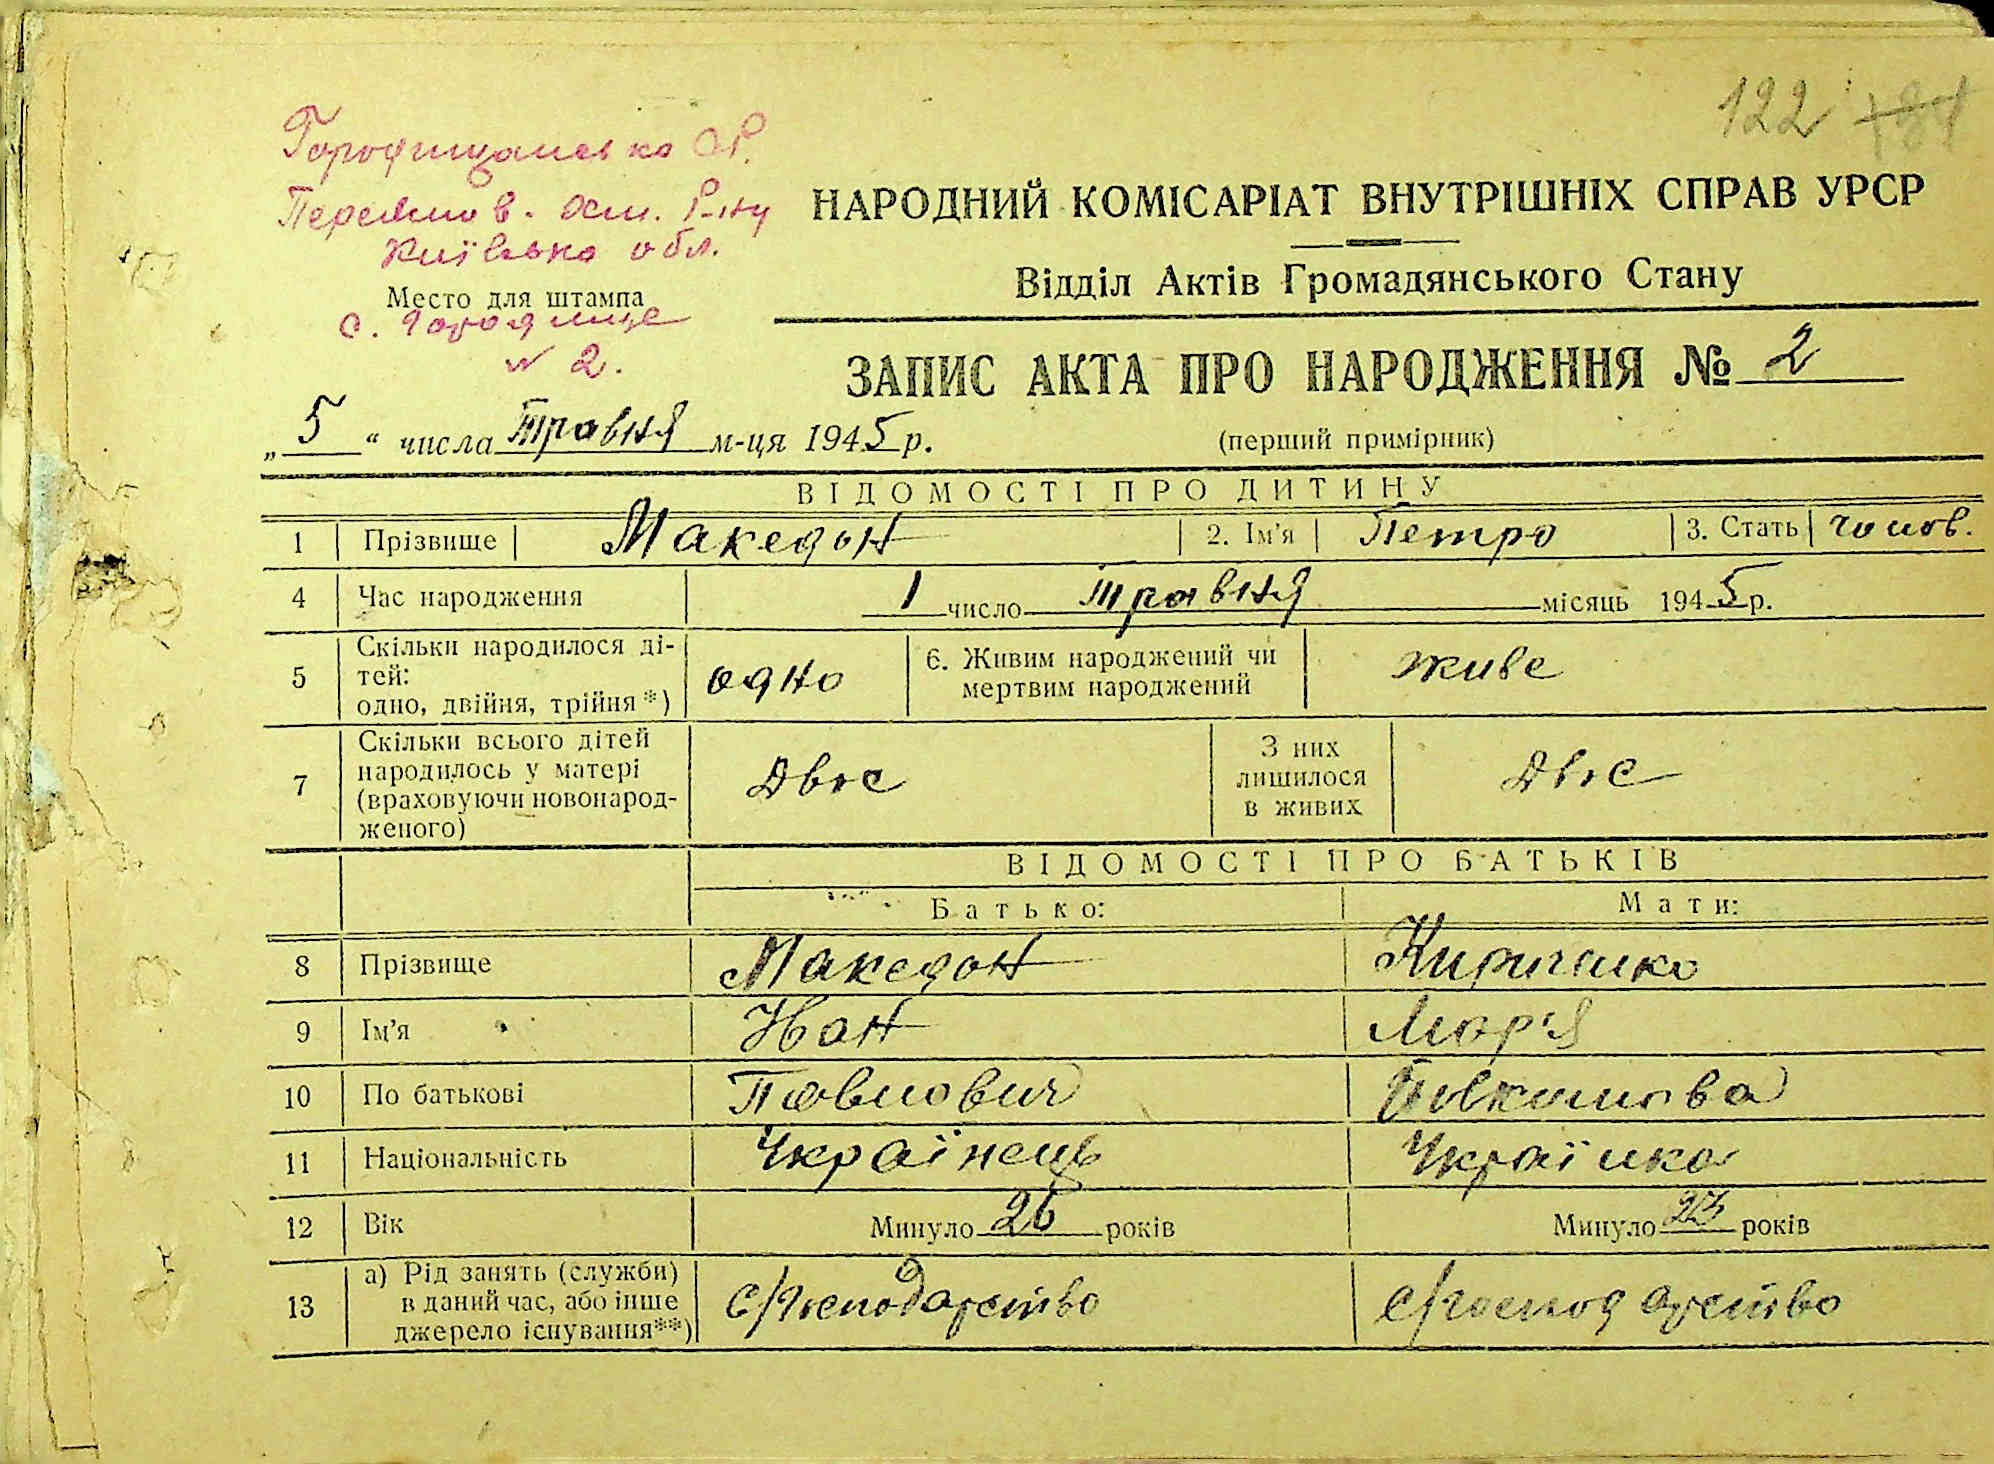 122 181
Городищанська с/Р.
Переяслав. Хм. Р-ну
Київська обл.
Место для штампа
с. Городище
№ 2.
НАРОДНИЙ КОМІСАРІАТ ВНУТРІШНІХ СПРАВ УРСР
Відділ Актів Громадянського Стану
ЗАПИС АКТА ПРО НАРОДЖЕННЯ № 2
„5“ числа Травня м-ця 1945 р. (перший примірник)
ВІДОМОСТІ ПРО ДИТИНУ
1 Прізвище Македон 2. Ім'я Петро 3. Стать чолов.
4 Час народження 1 число травня місяць 1945 р.
5 Скільки народилося ді-
тей:
одно, двійня, трійня*) одно 6. Живим народжений чи
мертвим народжений живе
7 Скільки всього дітей
народилось у матері
(враховуючи новонарод-
женого) Двоє З них
лишилося
в живих Двоє
ВІДОМОСТІ ПРО БАТЬКІВ
Батько: Мати:
8 Прізвище Македон Кириченко
9 Ім'я Іван Мар'я
10 По батькові Павлович
11 Національність Українець Українка
12 Вік Минуло 26 років Минуло 23 років
13 а) Рід занять (служби)
в даний час, або інше
джерело існування**) с/господарство с/господарство